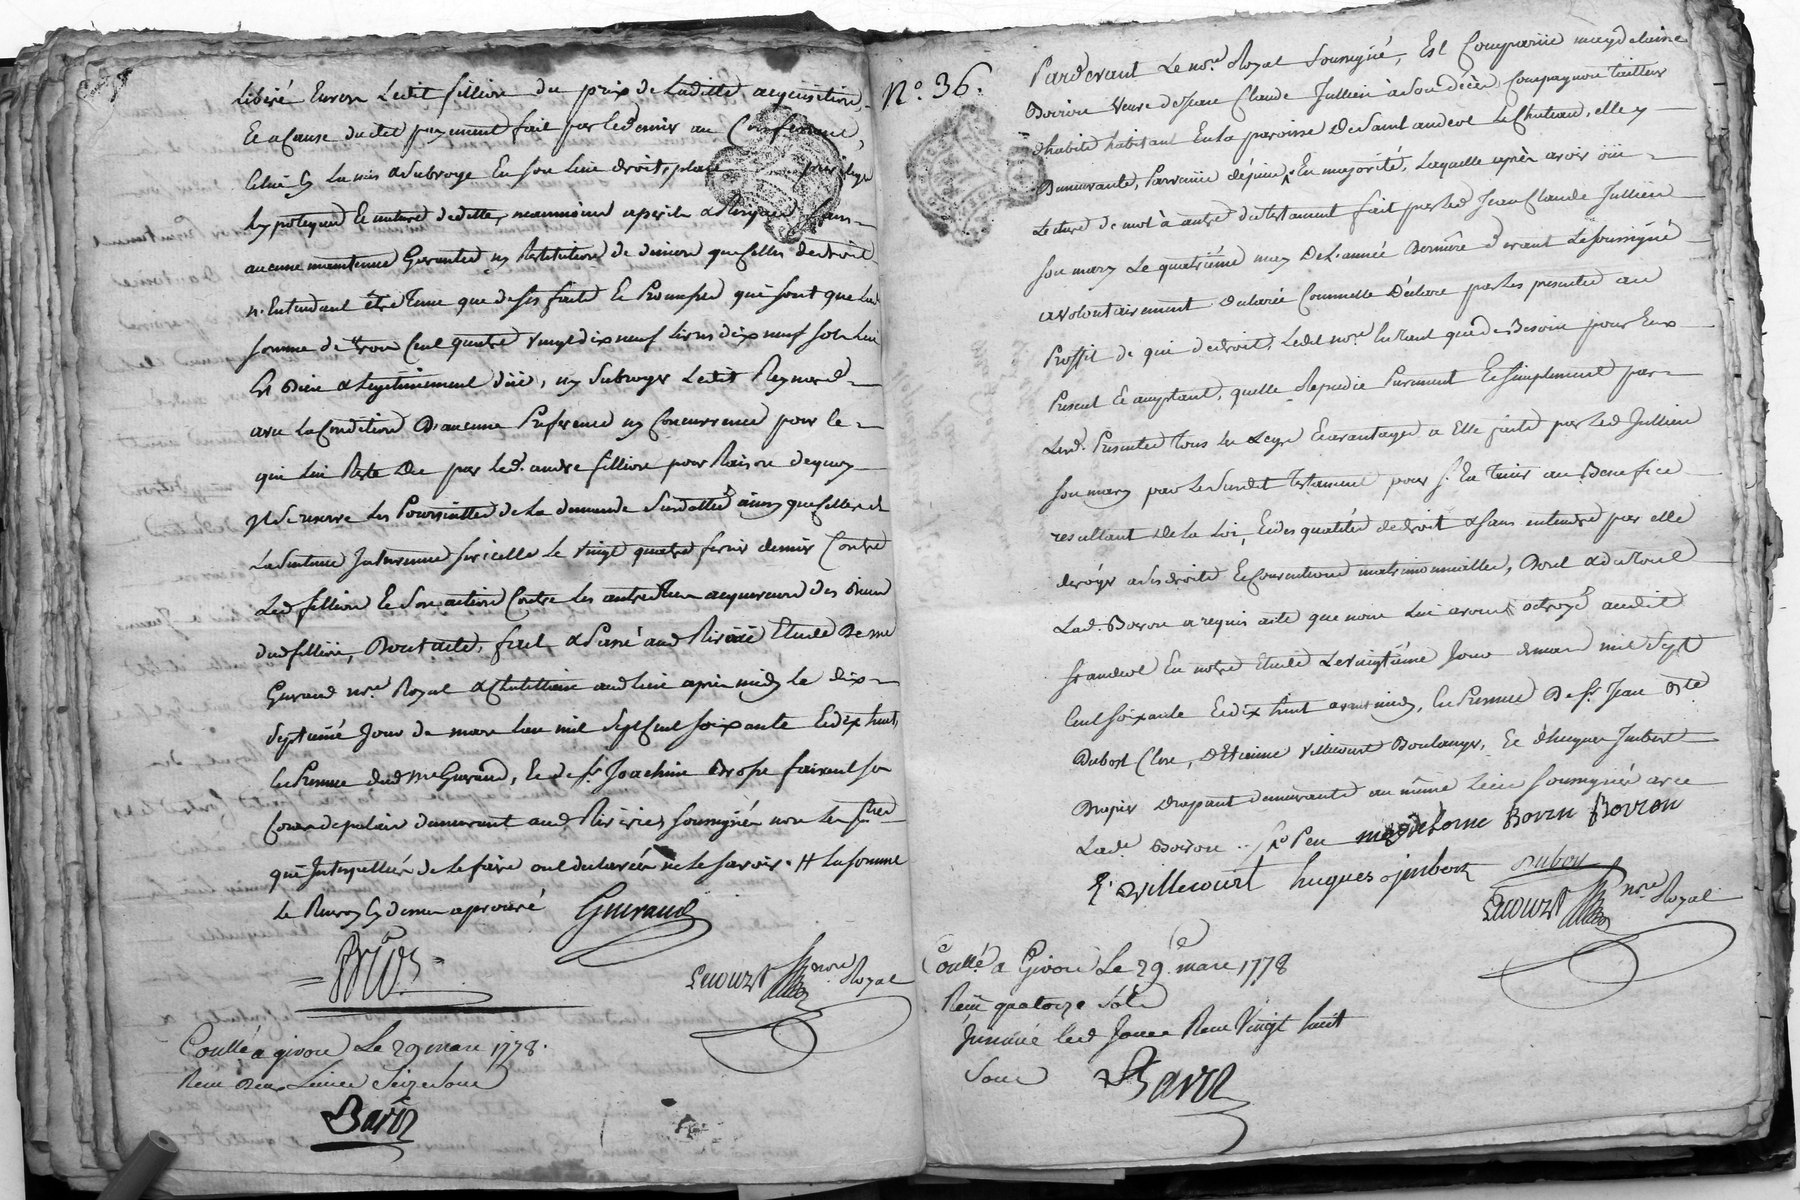 libéré Envers Ledit fillion du prix de Laditte acquisition,
Et a Cause dudit payement fait par led. Remis au Conferant,
Celui cy La mis & Subrogé En son Lieu droit, place privilege
hypoteque Et nature de dette, neanmoins a peril & Risque Sans
aucune maintenue Garantie ny Restitution de deniers que celles de droit
n'Entendant être Tenu que de Ses faits Et Promesses qui sont que lad
somme de Trois Cent quatre vingt dix neuf livres dix neuf sols Lui
Est Bien & legitimement düe, ny Subroger Ledit Reymond
avec La Condition D'aucune Preference ny Concurrence pour le
qui Lui Reste Du par led. andré fillion pour Raison de quoy
Il Se reserve Les Poursuittes de La demande Susdattée ainsy que celles de
La Sentence Intervenue sur icelle Le vingt quatre fevrier dernier Contre
Led fillion Et Son action Contre Les autres Tiers acquereurs des Biens
dud fillion, Dont acte, fait & Passé aud Rivirié Etude De me
Guiraud nore. Royal & Chatellain audit Lieu après midy le dix
Septieme Jour de mars l'an mil Sept Cent soixante Et dix huit,
En Presence dud me Guiraud, Et de Sr. Joachim Brosse faisant sa
Cour de palais demeurant aud Rivirie Soussignés non les parties
qui Interpellés de le faire ont declarées ne le Savoir. # La somme
le Renvoy Cy dessus aprouvé Guiraud
Lecourt nore. Royal
Conllé a givors Le 29 mars 1778.
Reçu Deux Livres Seize Sous
Bavoz
N°. 36.
Pardevant Le nore. Royal Soussigné, Est Comparüe magdelaine
Boiron Veuve de Jean Claude Jullien à son décès Compagnon tailleur
d'habits habitant En la paroisse De Saint andeol Le Chateau, elle y
Demeurante, Parvenüe déjeüe En majorité, Laquelle après avoir oüi
Lecture de mot à autre du testament fait par led Jean Claude Jullien
son mary Le quatrième may De L'année Derniere devant Le soussigné
a volontairement declaré Comme elle Déclare par Les presentes au
Proffit de qui de droit, Ledit nore. En tant que de Besoin pour Eux
Present Et acceptant, qu'elle Repudie Purement Et Simplement par
Lesd. Presentes Tous les Legs Et avantages a Elle faits par led Jullien
son mary par le Susdit Testament pour S'En Tenir au Benefice
resultant De la Loi, Et des qualités de droit & sans entendre par elle
deroger a ses droits Et Conventions matrimonialles, Dont & du tout
Lad. Boiron a requis acte que nous Lui avons octroyé audit
St andeol En notre Etude Le vingtième Jour de mars mil Sept
Cent soixante Et dix huit avant midy, En Presence De Sr. Jean Bte
Dubost Clerc, D'Etienne Villecourt Boulanger, Et d'hugues Imbert
Drapier drapant demeurants au même Lieu soussignés avec
Lad. Boiron magdeleine Boren Boiron
E. Villecourt hugues Jmbert Dubost
Lecourt nore Royal
Conllé a Givors Le 29. mars 1778
Reçu quatorze Sols
Insinué led Jour Reçu Vingt huit
Sous Bavoz